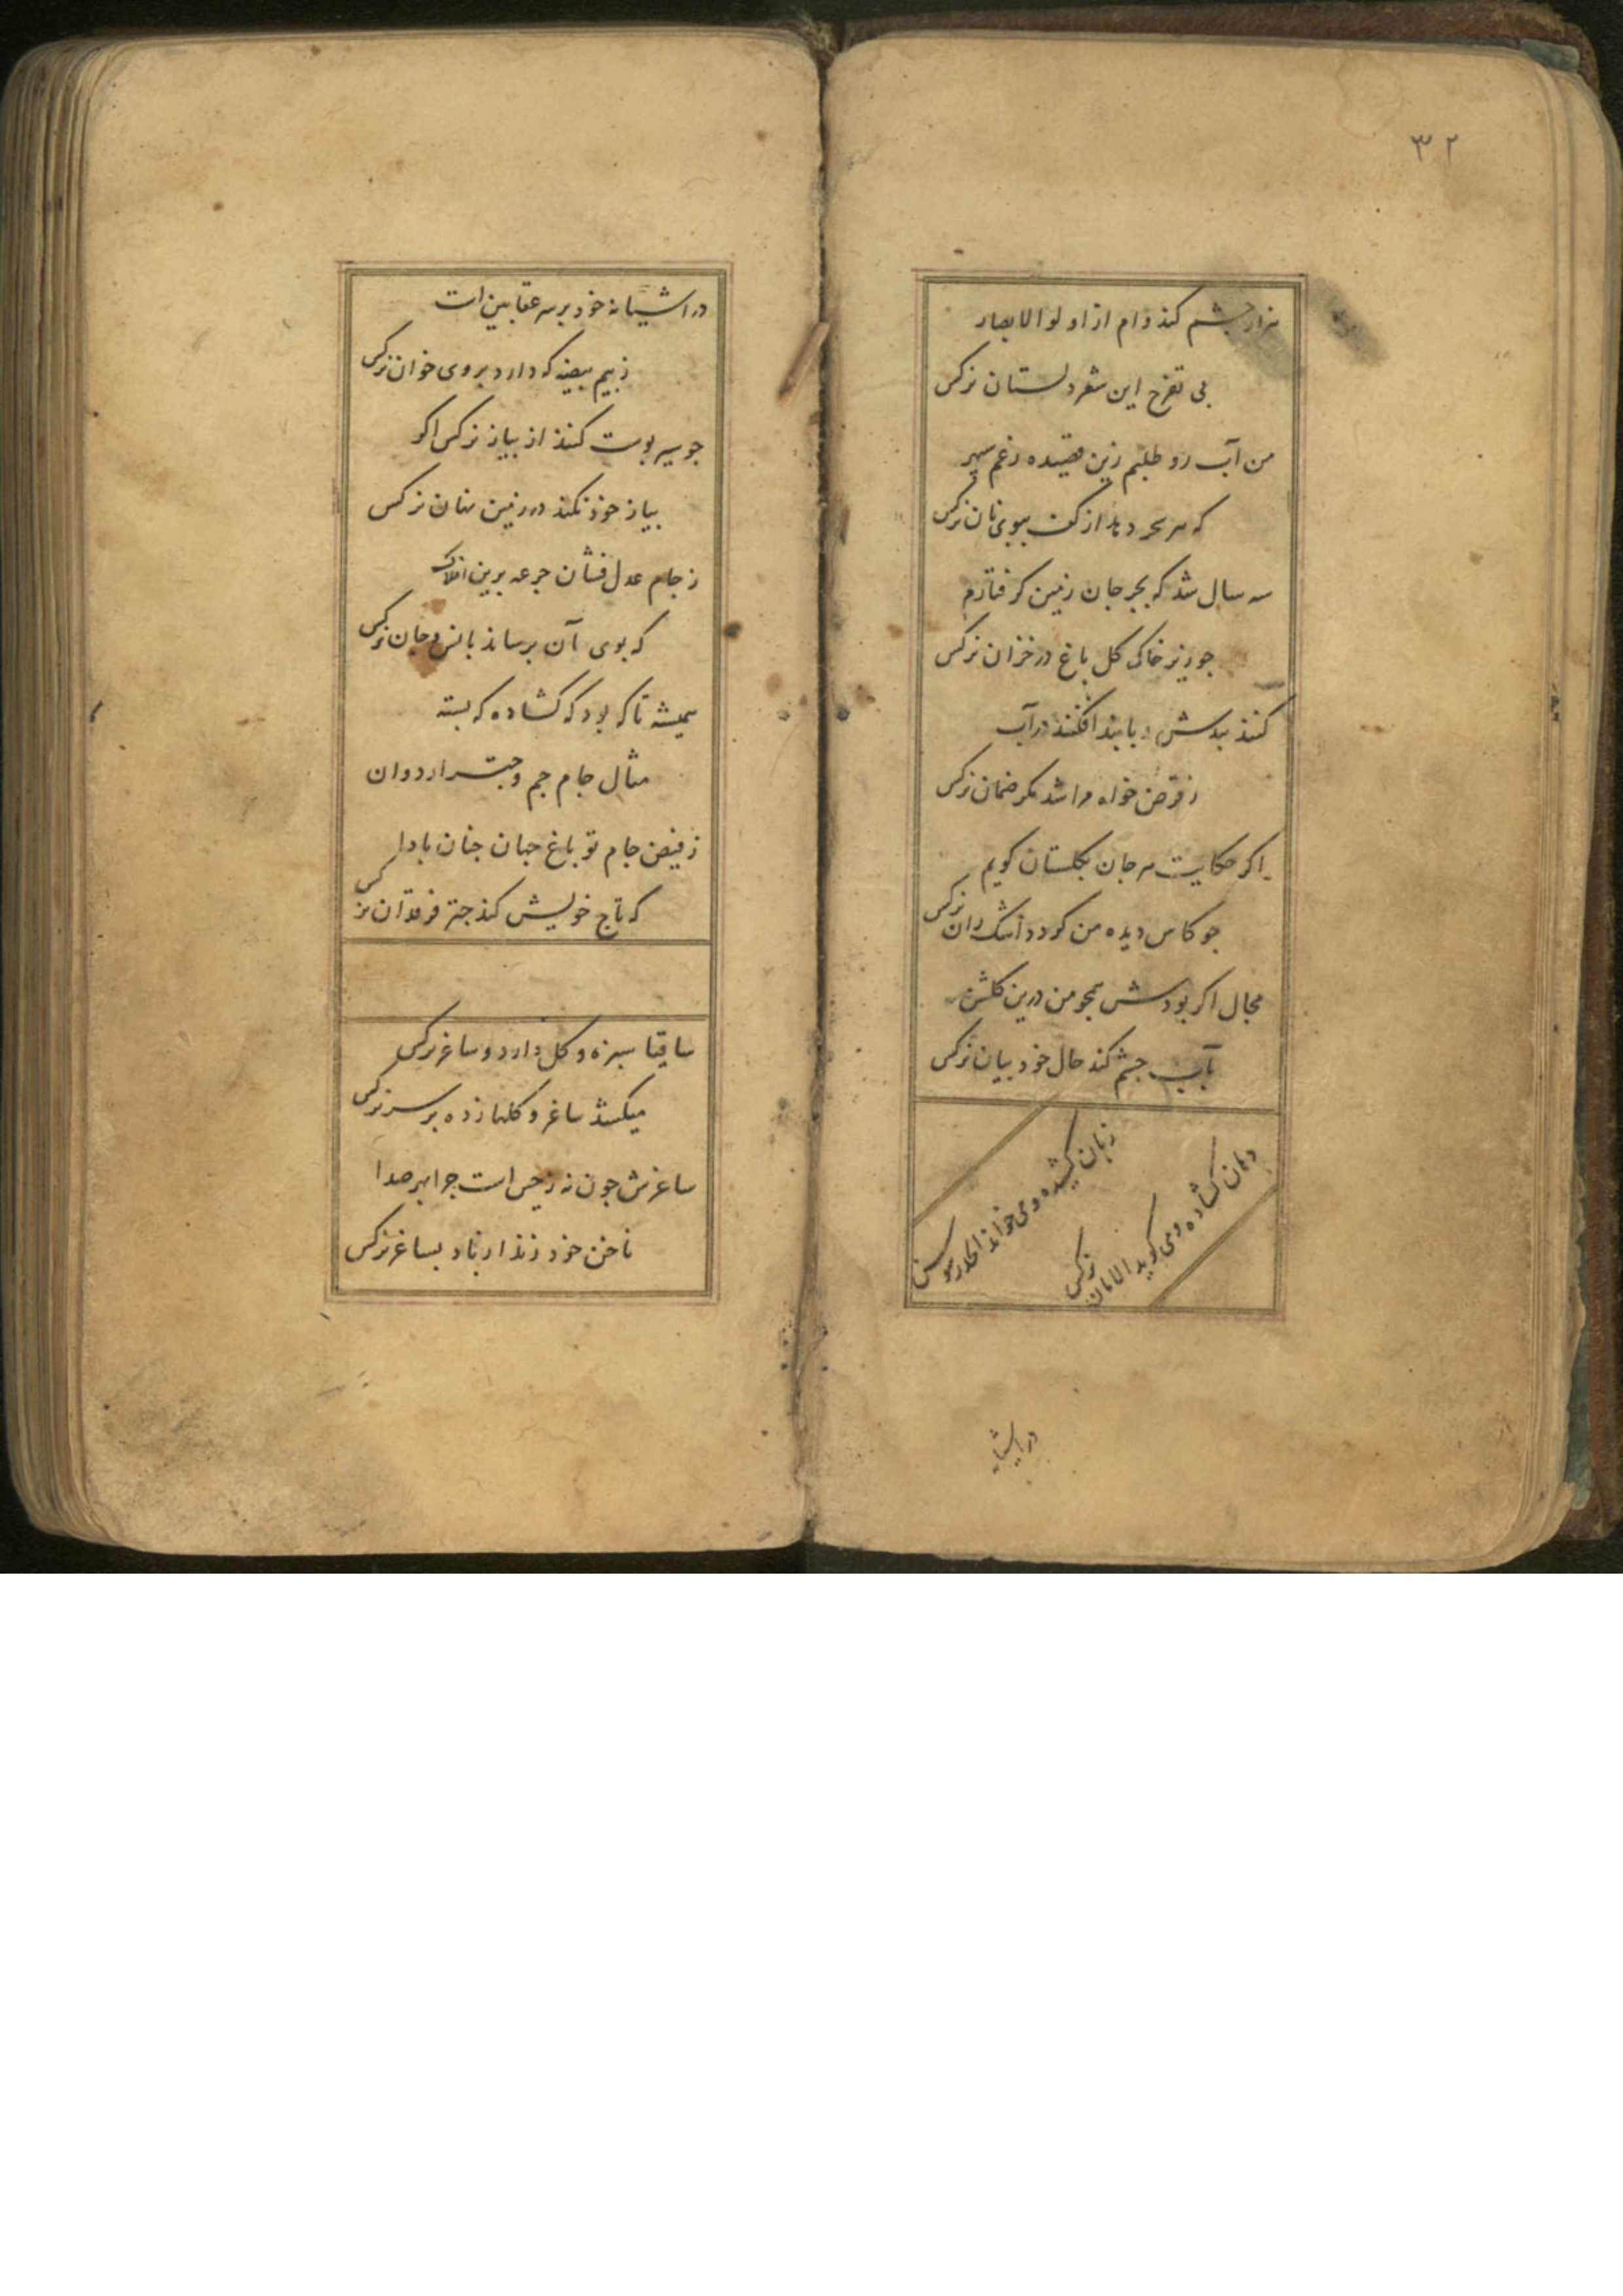 ۳۲
هزار چشم کند وام از اولوالابصار
پی تفرج این شعر دلستان نرکس
من آب رو طلبم زین قصیده رغم سپهر
که هر سحر دمد از کف ببوی نان نرکس
سه سال شد که بجرجان زمین کرفتارم
جو زیر خاکی کل باغ در خزان نرکس
کنند بندش و با بند افکنند در آب
ز قرض خواه مرا شد مکر ضمان نرکس
اکر حکایت مرجان بکلستان کویم
جو کاس دیده من کردد اشک ران نرکس
مجال اکر بودش همجو من درین کلشن
بآب جشم کند حال خود بیان نرکس
زبان کشیده و می خواند الحذر سوسن
دهان کشاده و می کوید الامان نرکس
در آشیانه
در آشیانه خود بر سر عقابین است
ز بیم بیضه که دارد بروی خوان نرکس
جو سیر پوست کنند از بیاز نرکس اکر
بیاز خود نکند در زمین نهان نرکس
ز جام عدل فشان جرعه برین افلاک
که بوی آن برساند بانس و جان نرکس
همیشه تا که بود که کشاده که بسته
مثال جام جم و جتر اردوان
ز فیض جام تو باغ جهان جنان بادا
که تاج خویش کند جتر فرقدان نرکس
ساقیا سبزه و کل دارد و ساغر نرکس
میکشد ساغر و کلها زده بر سر نرکس
ساغرش جون نه ز جس است جرا بهر صدا
ناخن خود زند ار باد بساغر نرکس